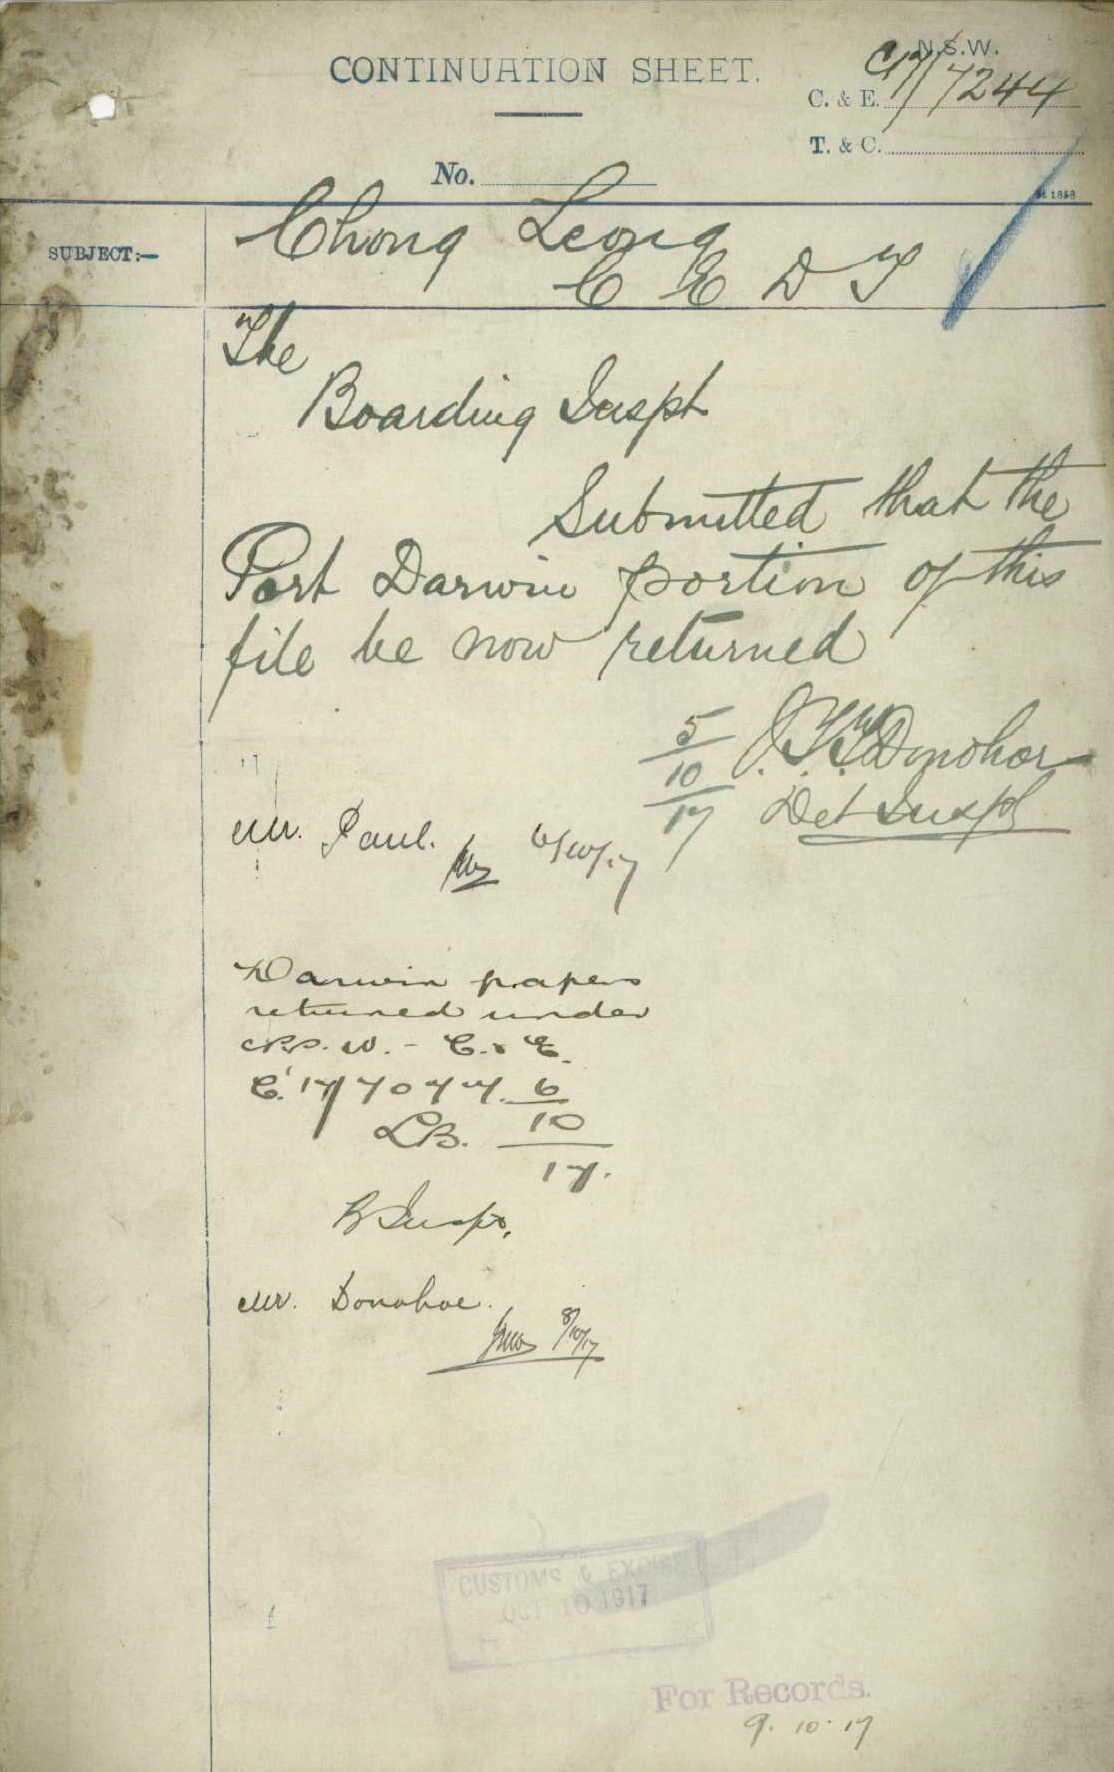 CONTINUATION SHEET.
N.S.W.
C. & E. C17/7244
T. & C.
No.
SUBJECT:— Chong Leong
C E D T
The
Boarding Inspt
Submitted that the
Port Darwin portion of this
file be now returned
5/10/17 J.T.T. Donohoe
Det Inspt
Mr. Paul.
6/10/17
Darwin papers
returned under
N.S.W. - C. & E.
C. 17/7077. 6/10/17.
LB.
B Inspt.
Mr. Donohoe.
8/10/17
CUSTOMS & EXCISE
OCT 10 1917
For Records.
9. 10. 17